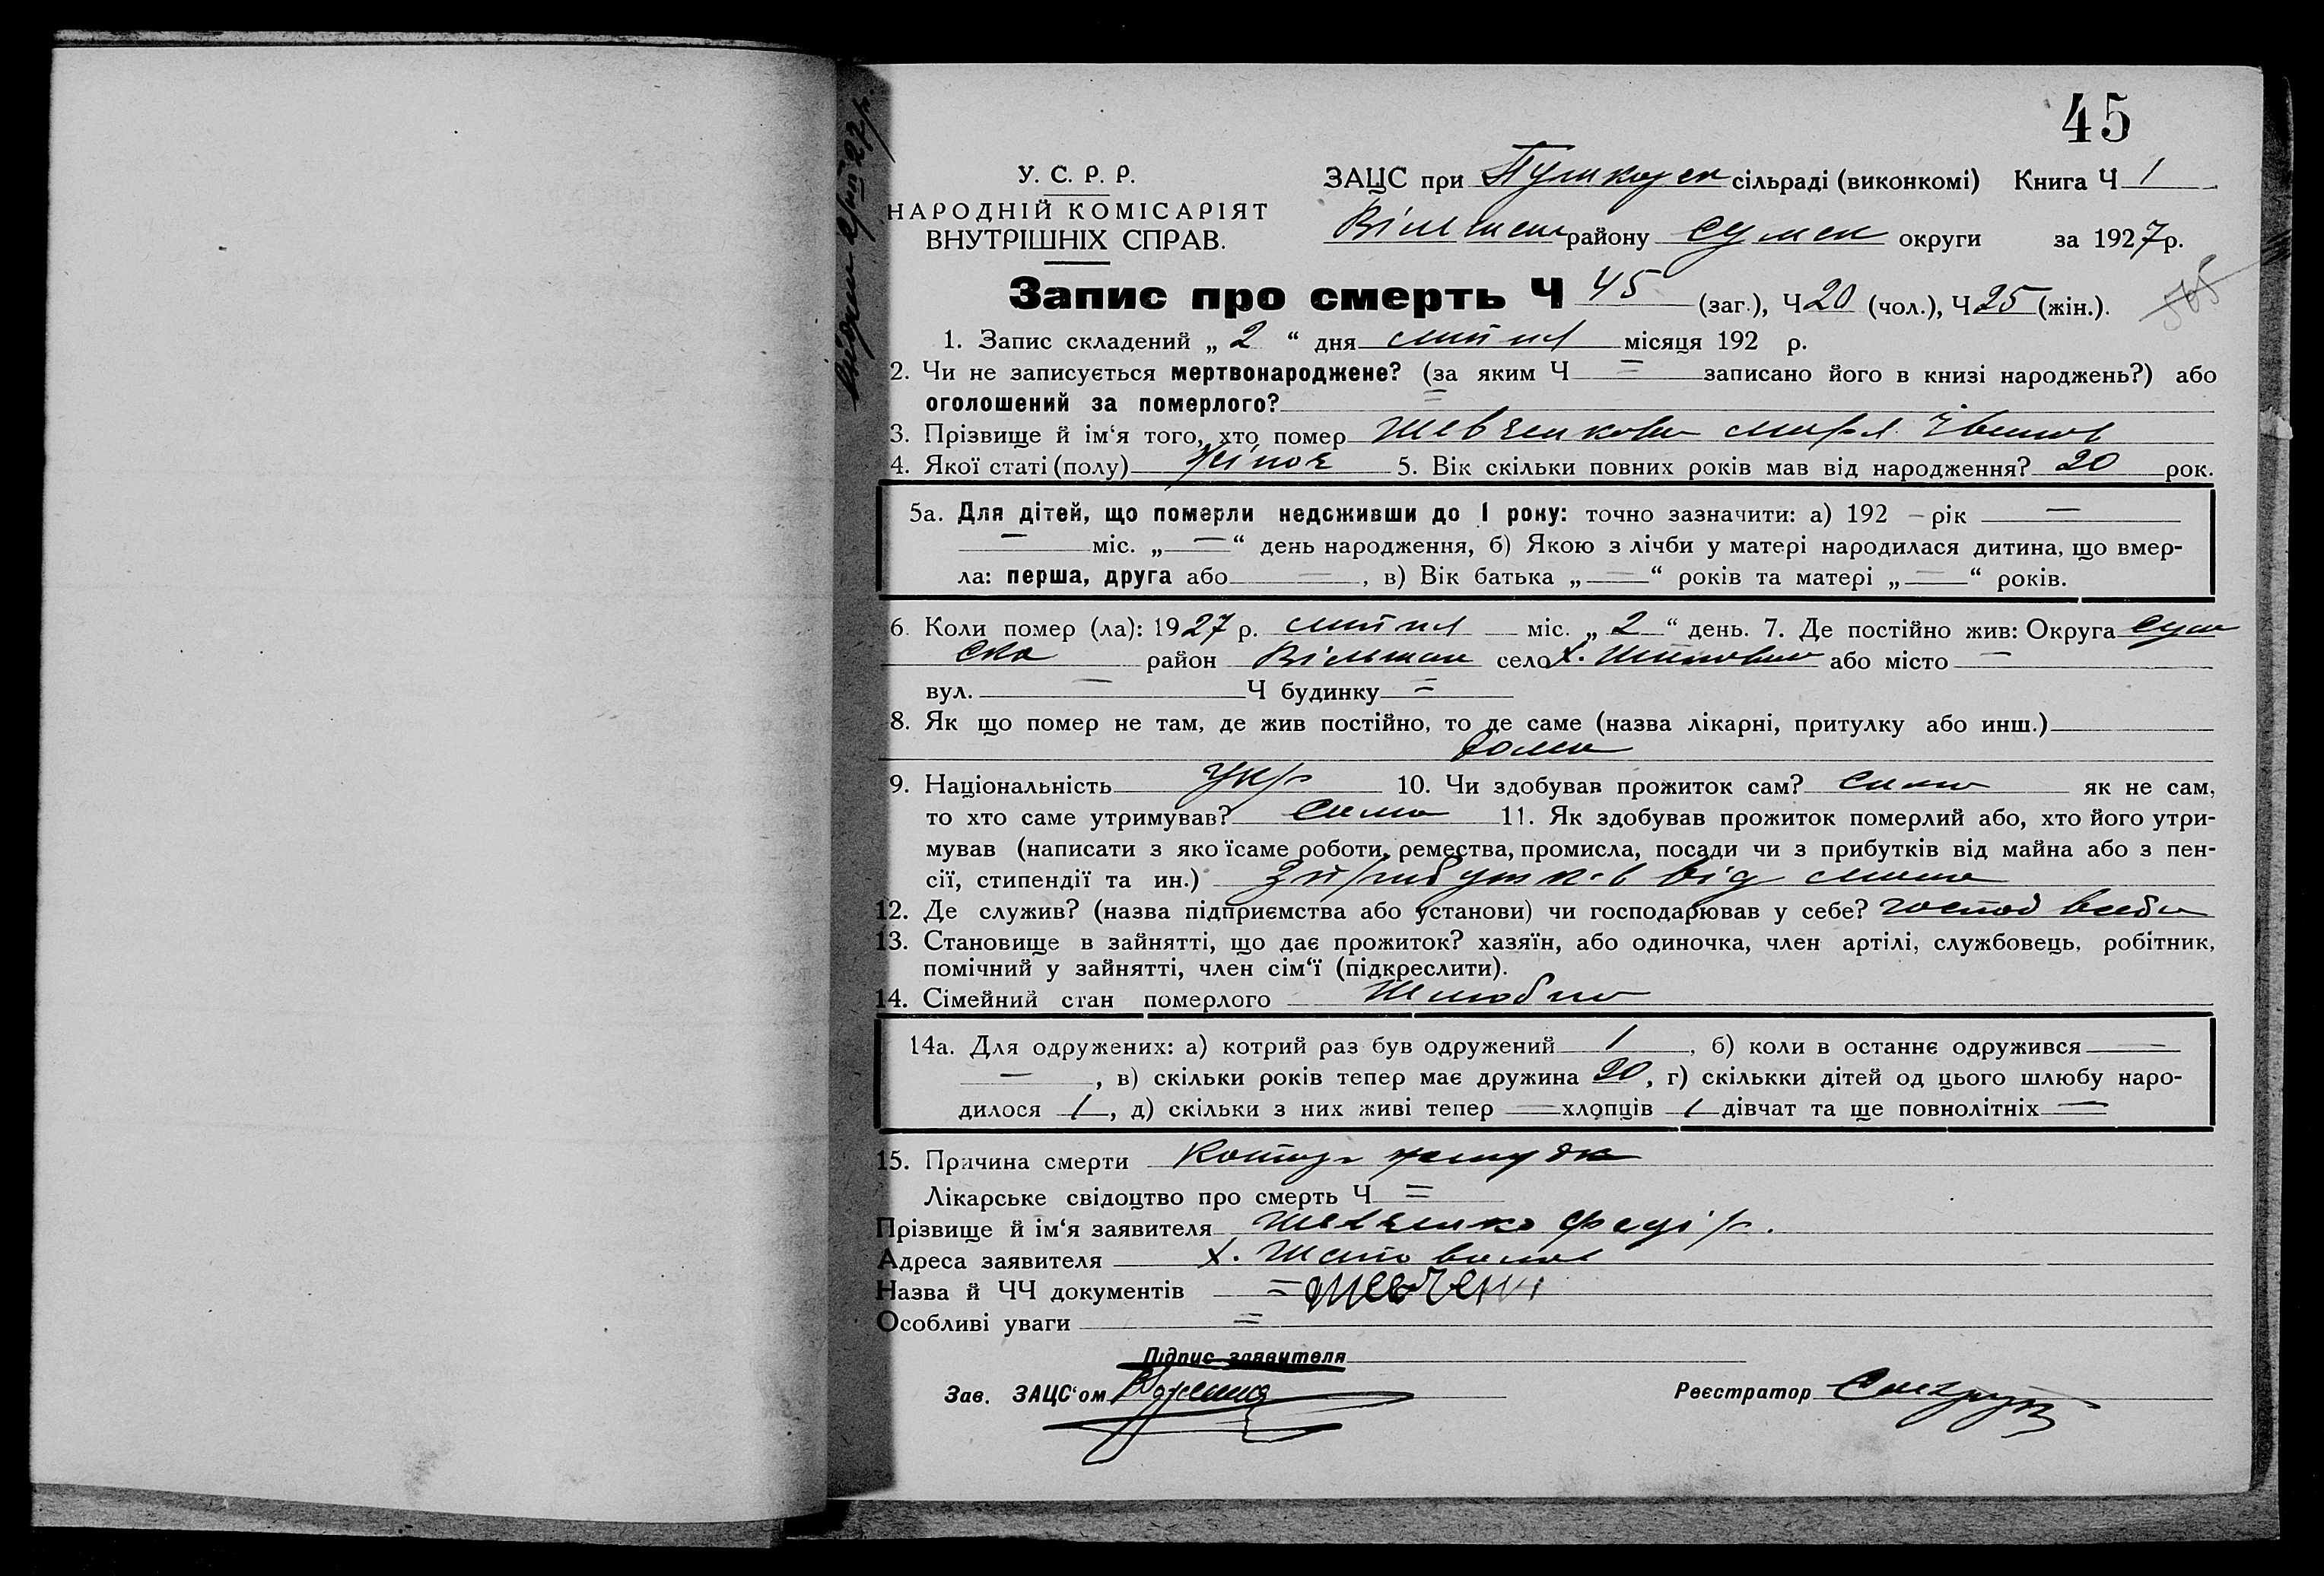 45
У. С. Р. Р.
НАРОДНІЙ КОМІСАРІЯТ
ВНУТРІШНІХ СПРАВ.
ЗАЦС при Пушкарск сільраді (виконкомі) Книга Ч 1
Вільшан району Сумск округи за 1927р.
Запис про смерть Ч 45 (заг.), Ч 20 (чол.), Ч 25 (жін.).
1. Запис складений „ 2 “ дня липня місяця 192 р.
2. Чи не записується мертвонароджене? (за яким Ч = записано його в книзі народжень?) або
оголошений за померлого? =
3. Прізвище й ім‘я того, хто помер Шевченкова
4. Якої статі (полу) жіноч 5. Вік скільки повних років мав від народження? 20 рок.
5а. Для дітей, що померли недоживши до 1 року: точно зазначити: а) 192 – рік —
— міс. „ — “ день народження, б) Якою з лічби у матері народилася дитина, що вмер-
ла: перша, друга або —, в) Вік батька „ — “ років та матері „ — “ років.
6. Коли помер (ла): 1927 р. липня міс. „ 2 “ день. 7. Де постійно жив: Округа Сум
ска район Вільшан село х. або місто —
вул. — Ч будинку =
8. Як що помер не там, де жив постійно, то де саме (назва лікарні, притулку або инш.)
дома
9. Національність Укр 10. Чи здобував прожиток сам? сама як не сам,
то хто саме утримував? сама 11. Як здобував прожиток померлий або, хто його утри-
мував (написати з якоїсаме роботи, ремества, промисла, посади чи з прибутків від майна або з пен-
сії, стипендії та ин.) з прибутків від майна
12. Де служив? (назва підприємства або установи) чи господарював у себе? господ всебе
13. Становище в зайнятті, що дає прожиток? хазяїн, або одиночка, член артілі, службовець, робітник,
помічний у зайнятті, член сім‘ї (підкреслити).
14. Сімейний стан померлого Шлюбна
14а. Для одружених: а) котрий раз був одружений 1, б) коли в останнє одружився —
—, в) скільки років тепер має дружина 20, г) скількки дітей од цього шлюбу наро-
дилося 1, д) скільки з них живі тепер — хлопців 1 дівчат та ще повнолітніх —
15. Причина смерти
Лікарське свідоцтво про смерть Ч =
Прізвище й ім‘я заявителя Шевченко Федір.
Адреса заявителя х.
Назва й ЧЧ документів = Шевчен
Особливі уваги =
Підпис заявителя
Зав. ЗАЦС‘ом
Реєстратор